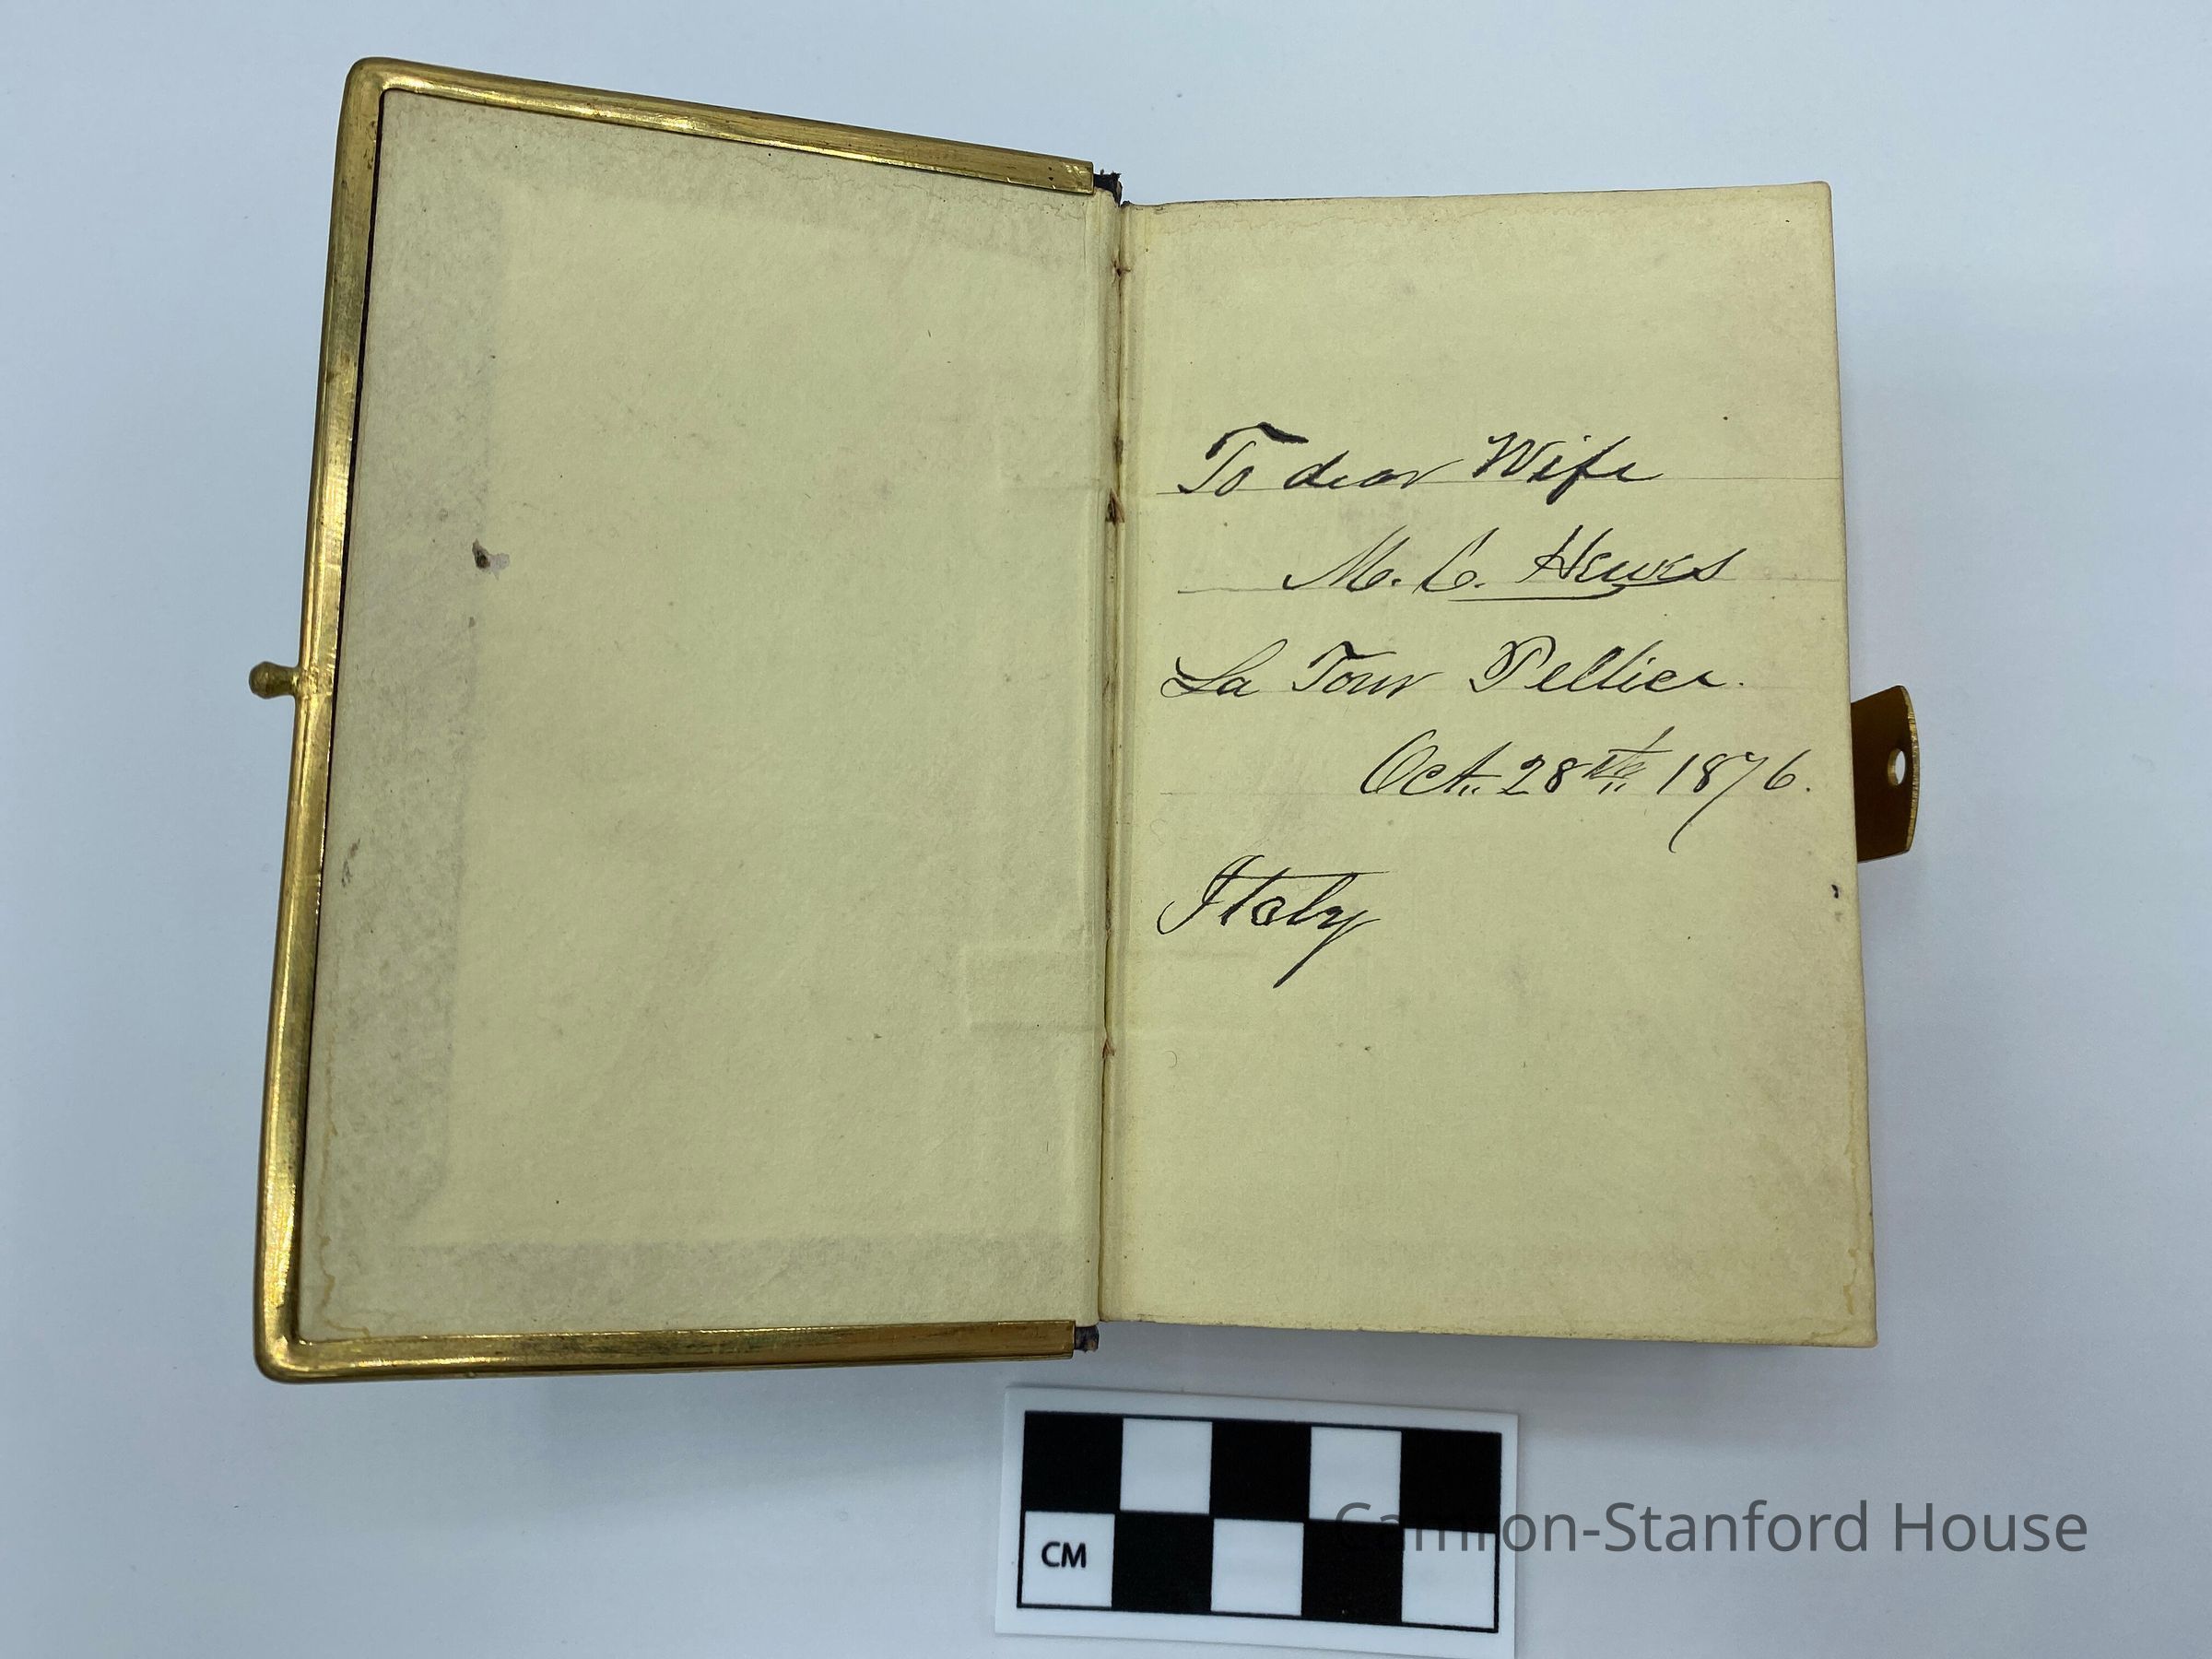 To dear Wife
M. C. Hewes
La Tour Pellice.
Oct. 28th 1876.
Italy
CM
Camron-Stanford House